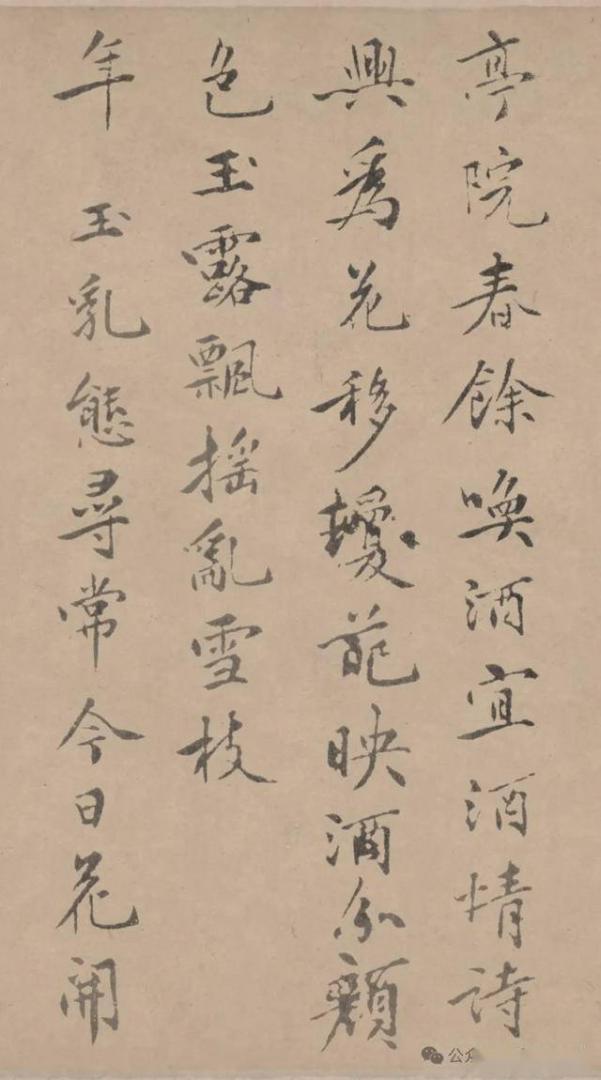 亭院春餘喚酒宜酒情詩
興爲花移瓊葩映酒分顏
色玉露飄摇亂雪枝
年玉乳態尋常今日花開
公众